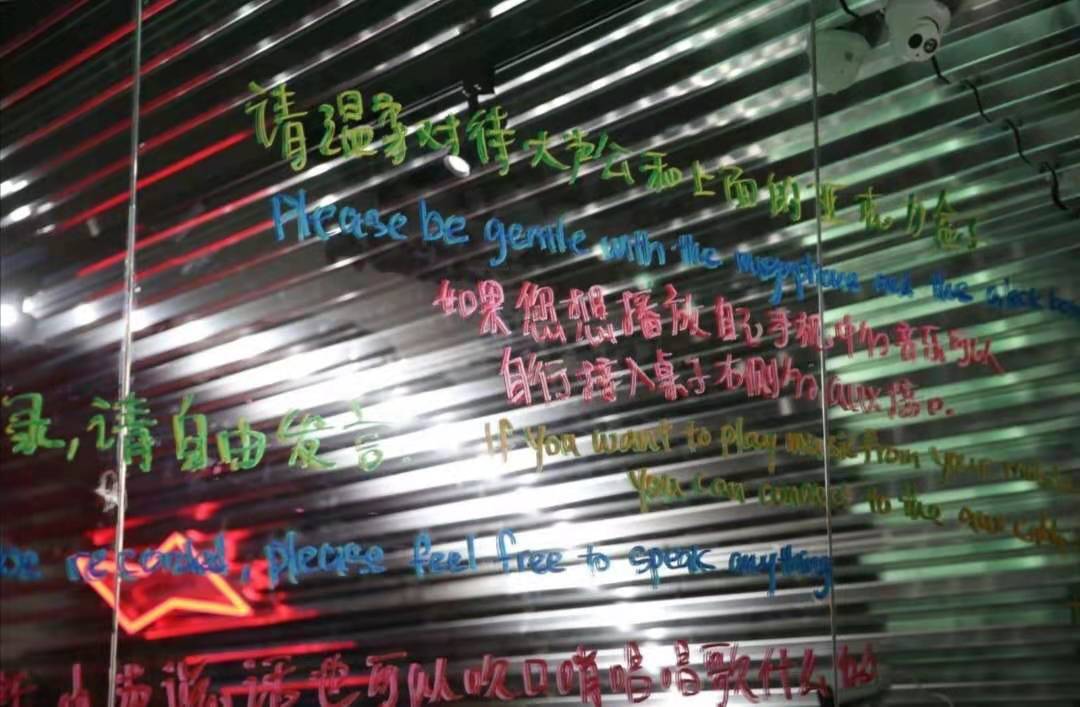 请温柔对待大声公和上面的亚克力盒子
Please be gentle with the megaphone and the
如果您想播放自己手机中的音乐可以
自行接入桌子右侧的aux接口.
录,请自由发言.
If you want to play music from your mobile
You can connect to the aux cable
be recorded, please feel free to speak anything
说话也可以吹口哨唱唱歌什么的